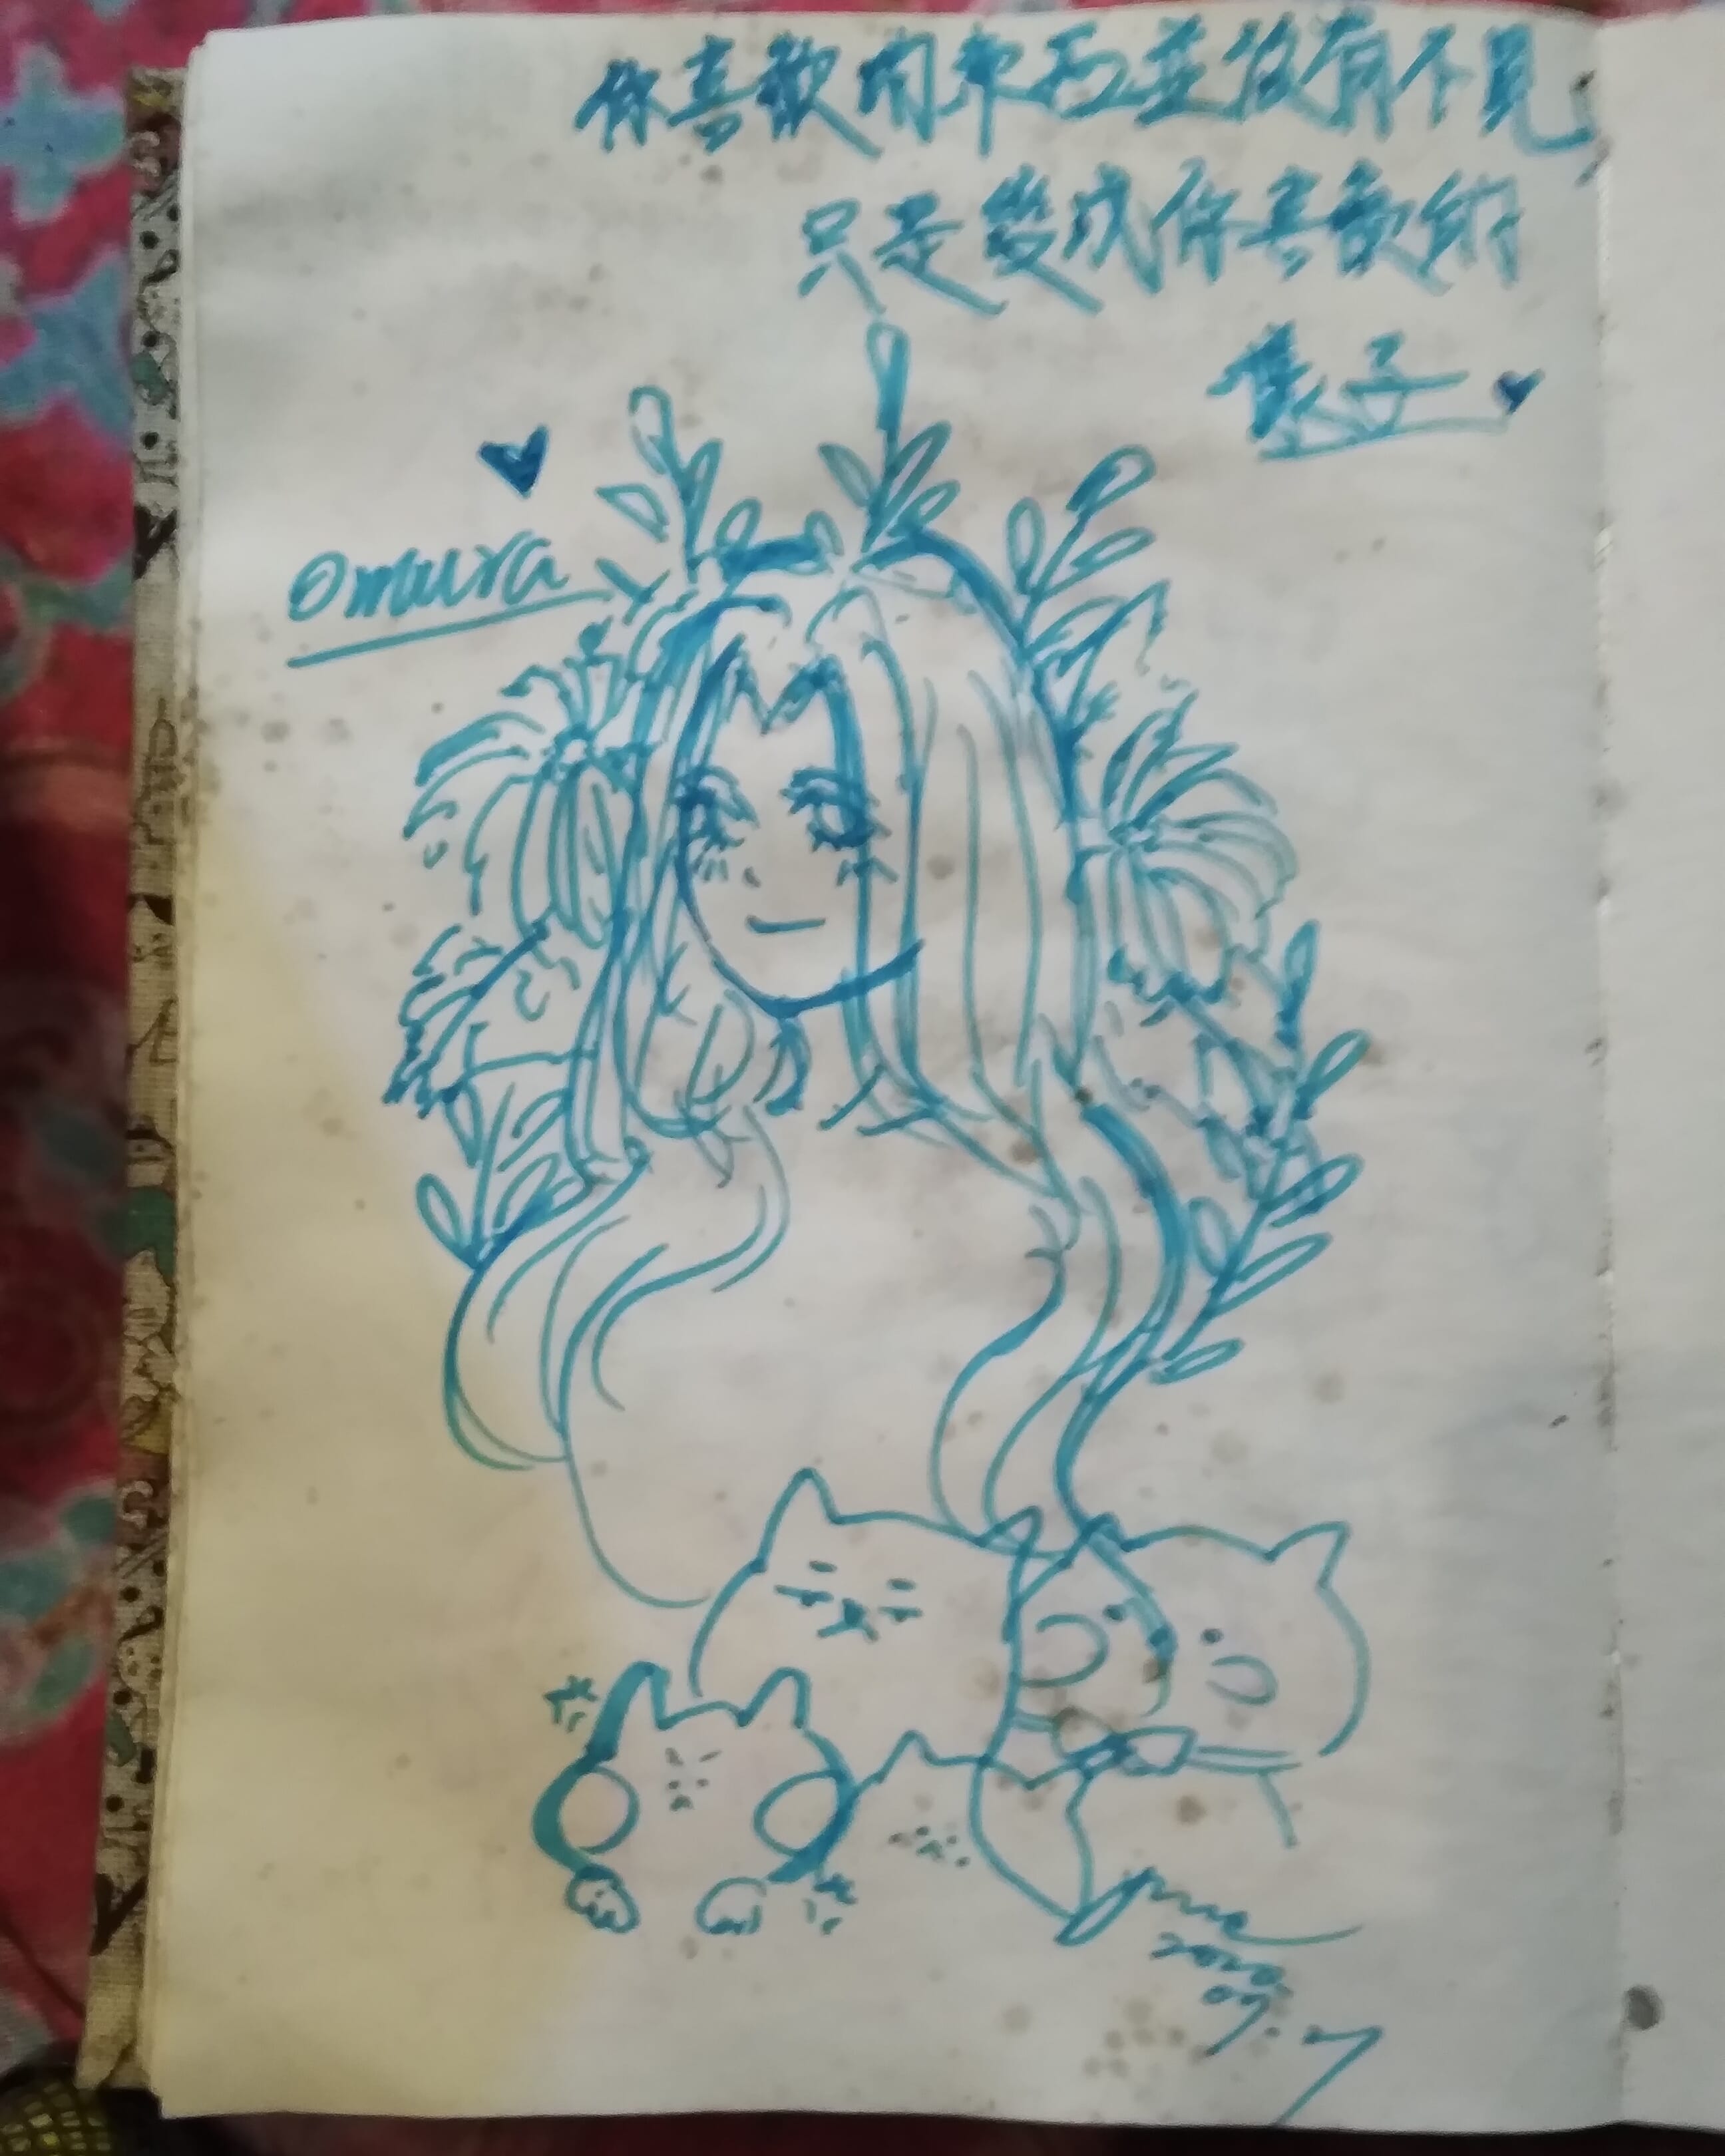 你喜歡的東西並沒有不見,
只是變成你喜歡的
樣子
omura
2020
07.
7